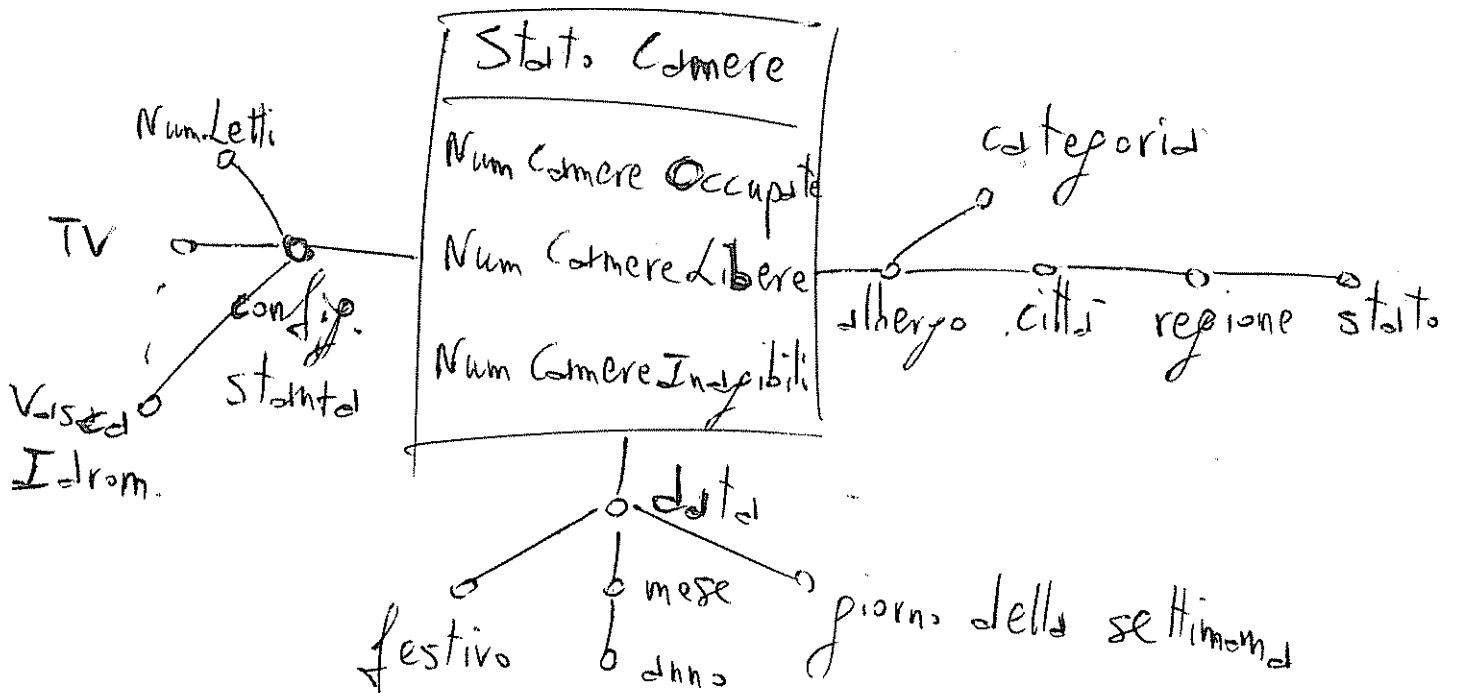 Stato Camere
Num Camere Occupate
Num Camere Libere
Num Camere Inagibili
Num. Letti
TV
config.
stanza
Vasca
Idrom.
categoria
albergo città regione stato
data
festivo
mese
anno
giorno della settimana